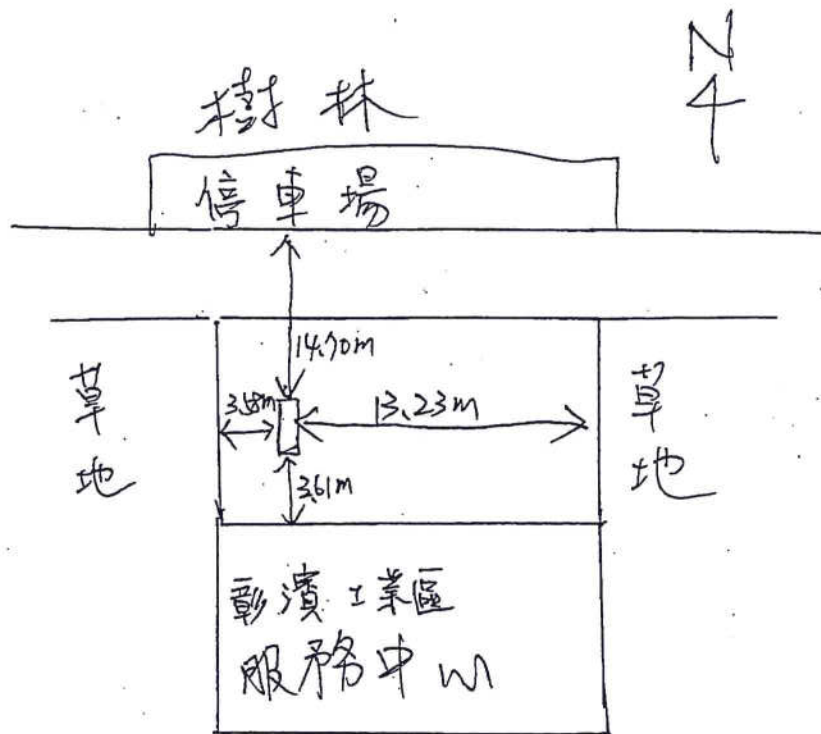 N
樹林
停車場
14.70m
草地
3.58m
13.23m
草地
3.61m
彰濱工業區
服務中心